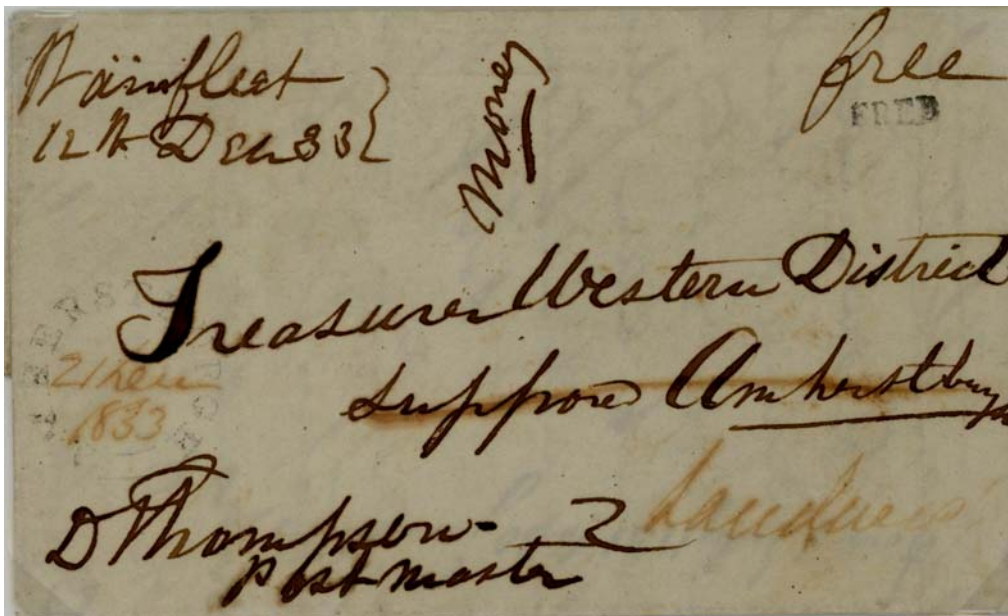 Wainfleet
12th Dec 33
Money
free
FREE
Treasurer Western District
suppose Amherstburgh
1833
D Thompson
Post Master